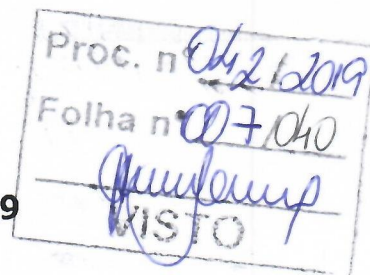 Proc. n 042/2019
Folha n 007/040
9
VISTO